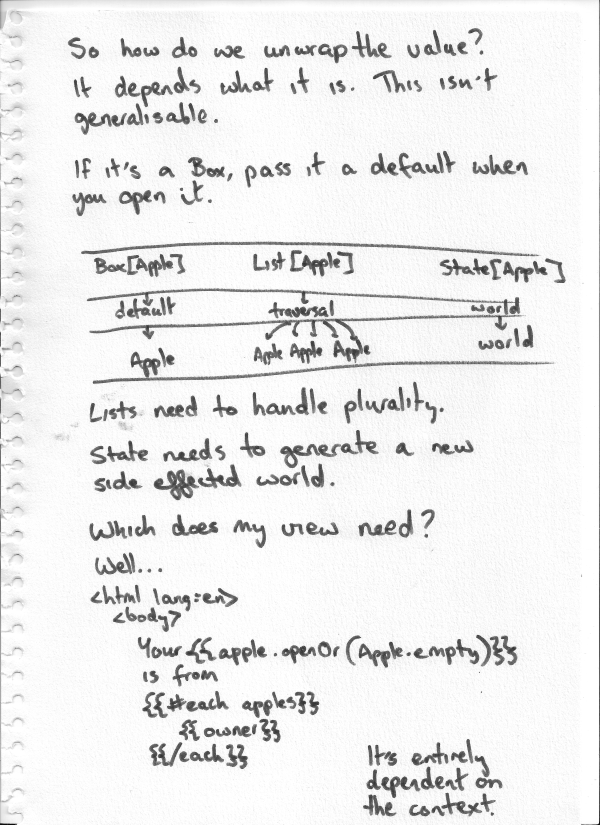 So how do we unwrap the value?
It depends what it is. This isn't
generalisable.
If it's a Box, pass it a default when
you open it.
Box[Apple] List[Apple] State[Apple]
default traversal world
Apple Apple Apple Apple world
Lists need to handle plurality.
State needs to generate a new
side effected world.
Which does my view need?
Well...
<html lang=en>
<body>
Your {{apple.openOr(Apple.empty)}}
is from
{{#each apples}}
{{owner}}
{{/each}}
It's entirely
dependent on
the context.